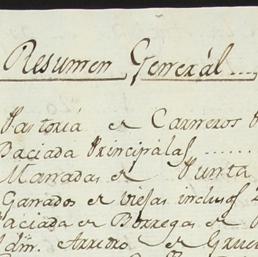 Resumen General....
Pastoria de Carneros
Baciada Principal
Manadas de Punta
Ganados de viejas inclusos
Baciada de Borregas de
Adm. de